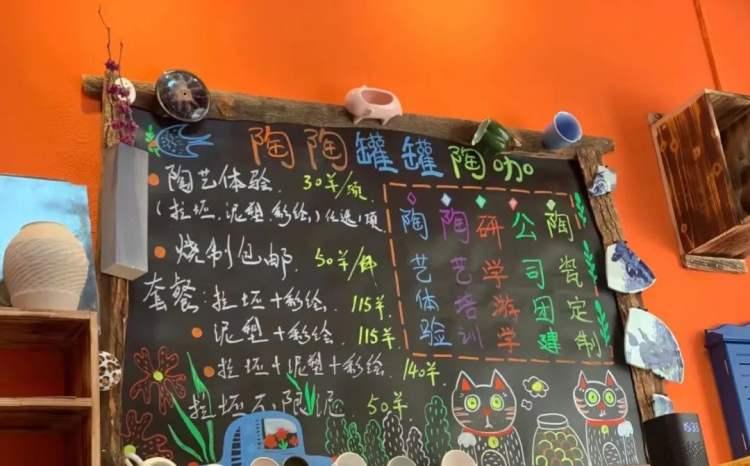 陶陶罐罐陶咖
陶艺体验 30羊/项
(拉坯、泥塑、彩绘)任选1项
烧制包邮 50羊/件
套餐:拉坯+彩绘 115羊
泥塑+彩绘 115羊
拉坯+泥塑+彩绘 140羊
拉坯不限泥 50羊
陶艺体验
陶艺培训
研学游学
公司团建
陶瓷定制